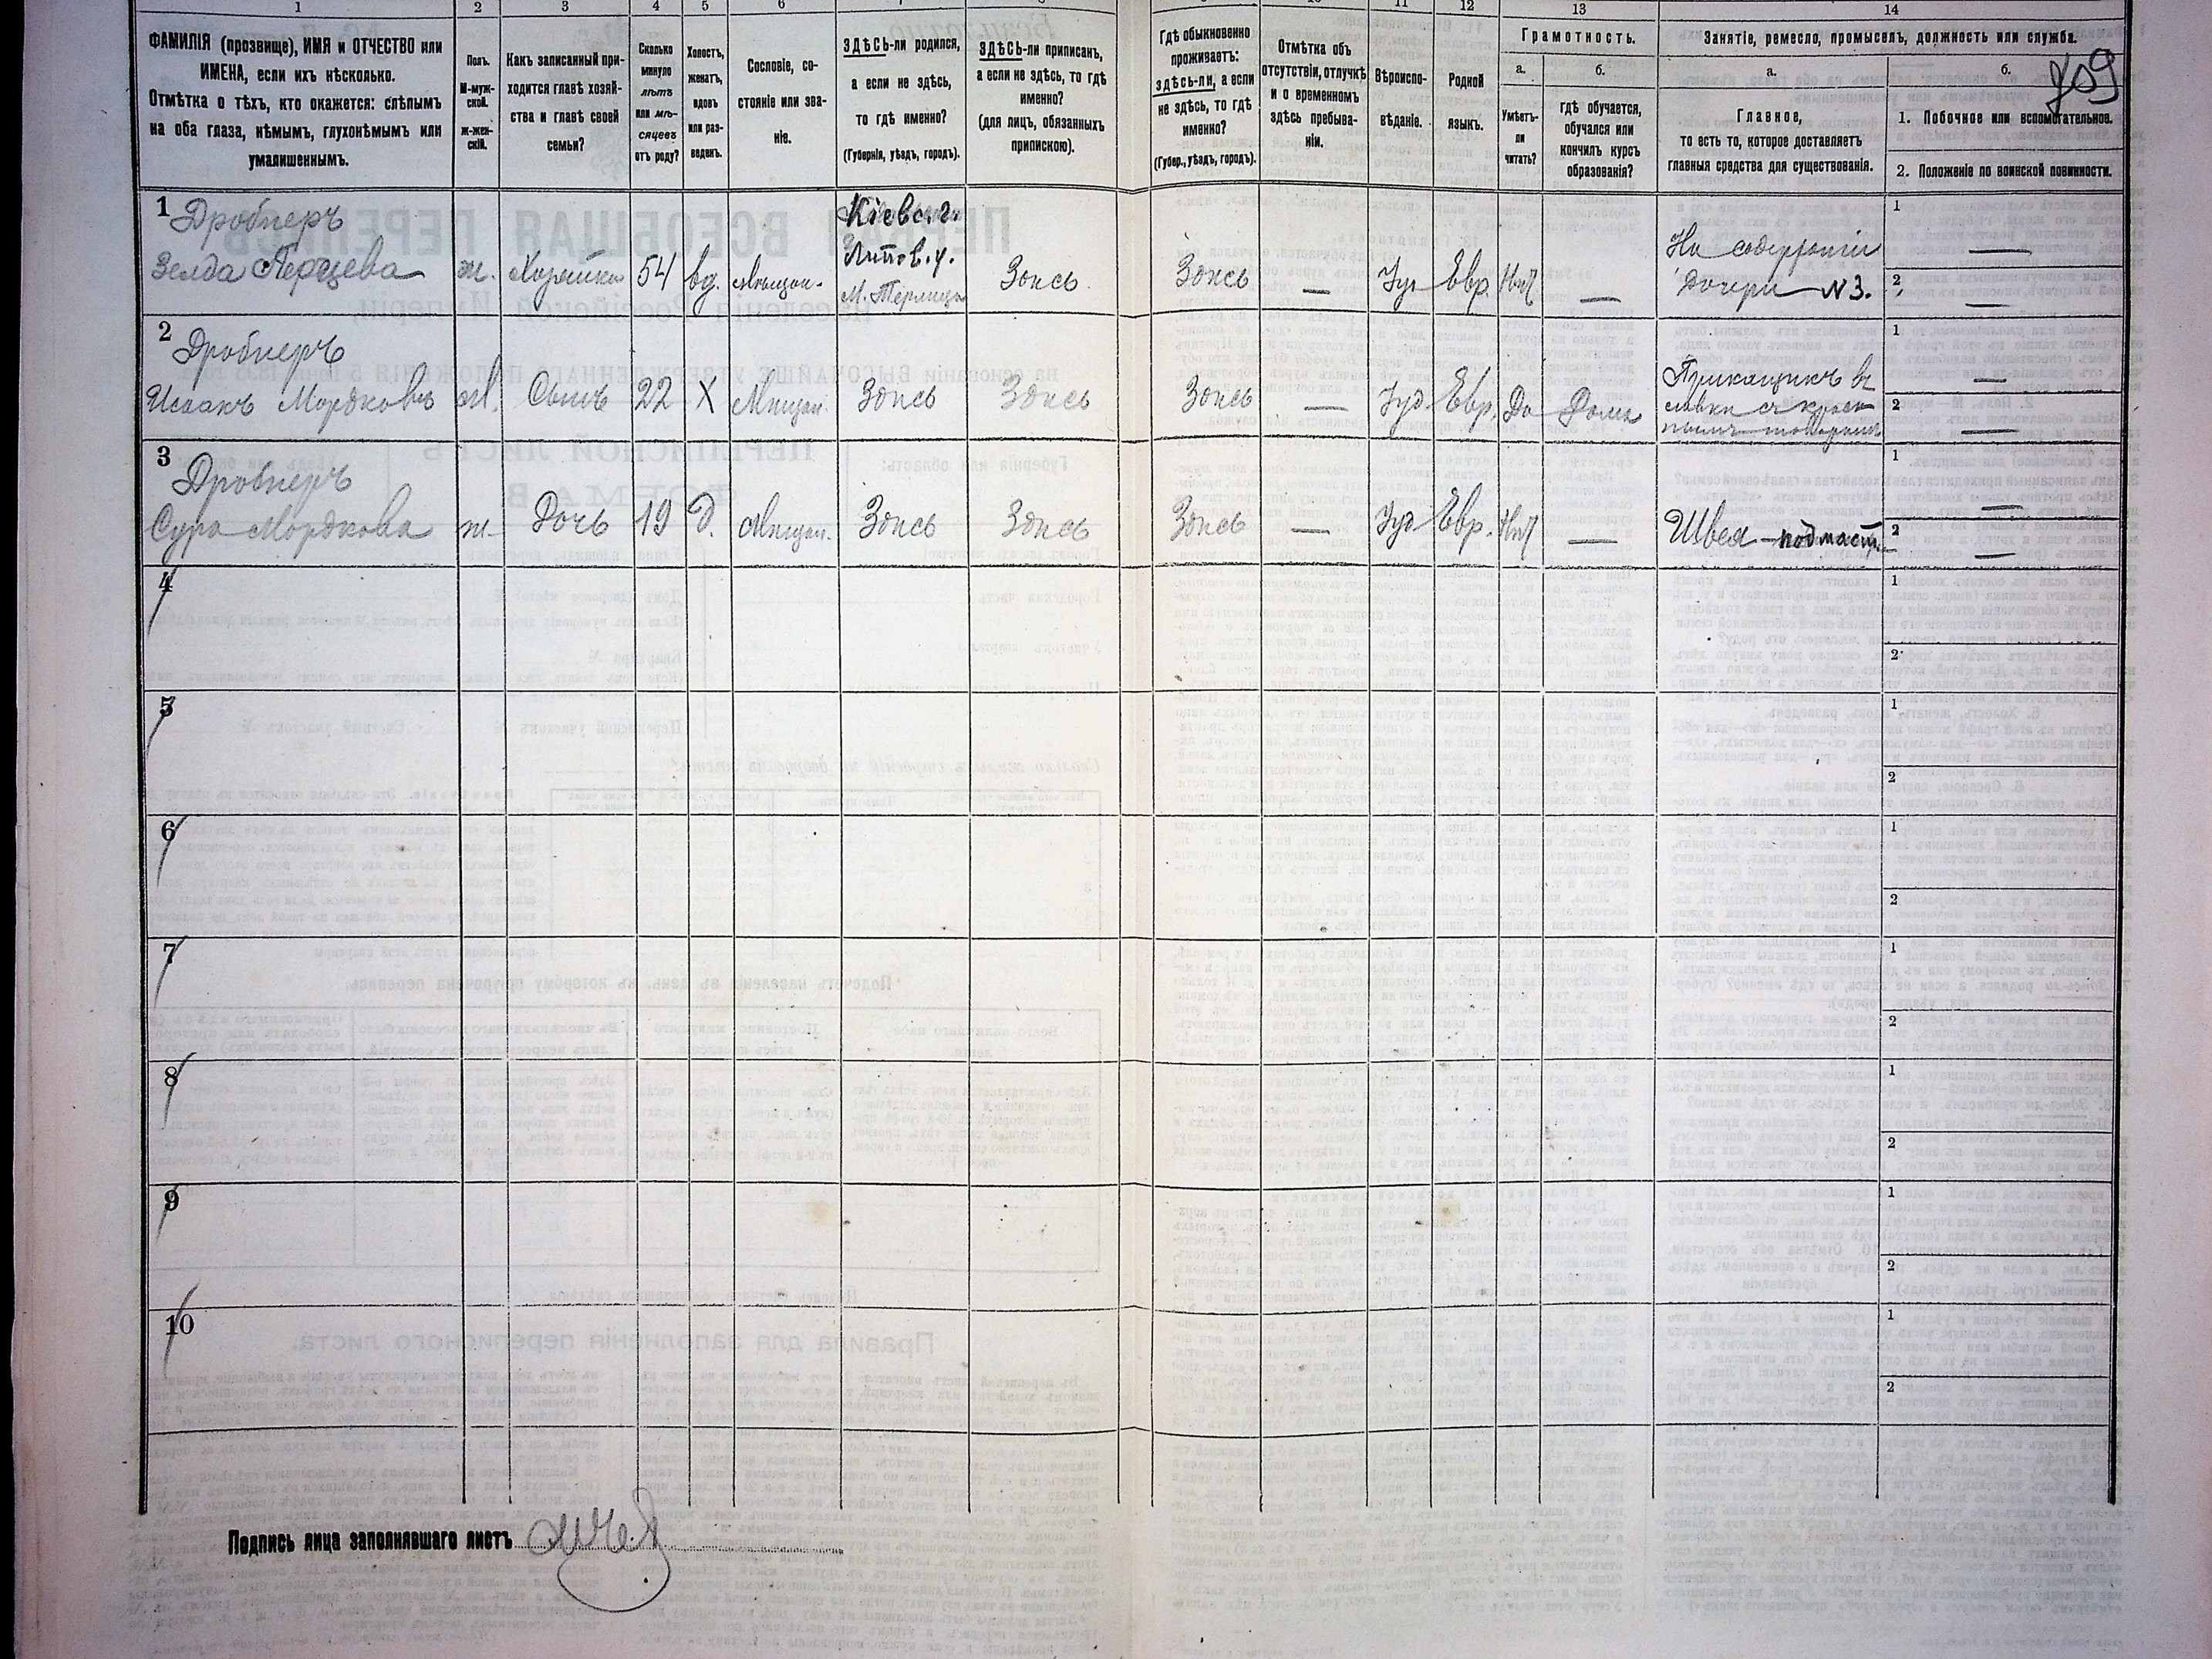 1 2 3 4 5 6 7 8 9 10 11 12 13 14
ФАМИЛІЯ (прозвище), ИМЯ и ОТЧЕСТВО или
ИМЕНА, если ихъ нѣсколько.
Отмѣтка о тѣхъ, кто окажется: слѣпымъ
на оба глаза, нѣмымъ, глухонѣмымъ или
умалишеннымъ.
Полъ.
М-муж-
ской.
ж-жен-
скій.
Какъ записанный при-
ходится главѣ хозяй-
ства и главѣ своей
семьи?
Сколько
минуло
лѣтъ
или мѣ-
сяцевъ
отъ роду?
Холостъ,
женатъ,
вдовъ
или раз-
веденъ.
Сословіе, со-
стояніе или зва-
ніе.
ЗДѢСЬ-ли родился,
а если не здѣсь,
то гдѣ именно?
(Губернія, уѣздъ, городъ).
ЗДѢСЬ-ли приписанъ,
а если не здѣсь, то гдѣ
именно?
(для лицъ, обязанныхъ
припискою).
Гдѣ обыкновенно
проживаетъ:
здѣсь-ли, а если
не здѣсь, то гдѣ
именно?
(Губер., уѣздъ, городъ).
Отмѣтка объ
отсутствіи, отлучкѣ
и о временномъ
здѣсь пребыва-
ніи.
Вѣроиспо-
вѣданіе.
Родной
языкъ.
Грамотность.
а.
Умѣетъ-
ли
читать?
б.
гдѣ обучается,
обучался или
кончилъ курсъ
образованія?
Занятіе, ремесло, промыселъ, должность или служба.
а.
Главное,
то есть то, которое доставляетъ
главныя средства для существованія.
б.
1. Побочное или вспомогательное.
2. Положеніе по воинской повинности.
1 Дробнеръ
Зелда Перцева ж. Хозяйка 54 вд. Мѣщан.
Кіевс. г.
Липов. у.
Здѣсь Здѣсь — Іуд Евр. Нѣт —
На содержаніи
дочери N3.
1 —
2 —
2 Дробнеръ
Исаакъ Мордковъ М. Сынъ 22 X Мѣщан. Здѣсь Здѣсь Здѣсь — Іуд Евр. Да Дома
Прикащикъ въ
лавки съ крас
нымъ товаромъ
1 —
2 —
3 Дробнеръ
Сура Мордкова ж. Дочь 19 Д. Мѣщан. Здѣсь Здѣсь Здѣсь — Іуд Евр. Нѣт —
Швея — подмаст.
1 —
2 —
4 1
2
5 1
2
6 1
2
7 1
2
8 1
2
9 1
2
10 1
2
Подпись лица заполнявшаго листъ